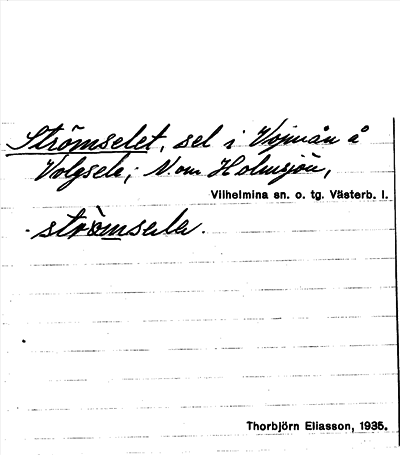 Strömselet, sel i Vojmån å
Volgsele; N. om Holmsjön,
Vilhelmina sn. o. tg. Västerb. l.
strömsele.
Thorbjörn Eliasson, 1935.